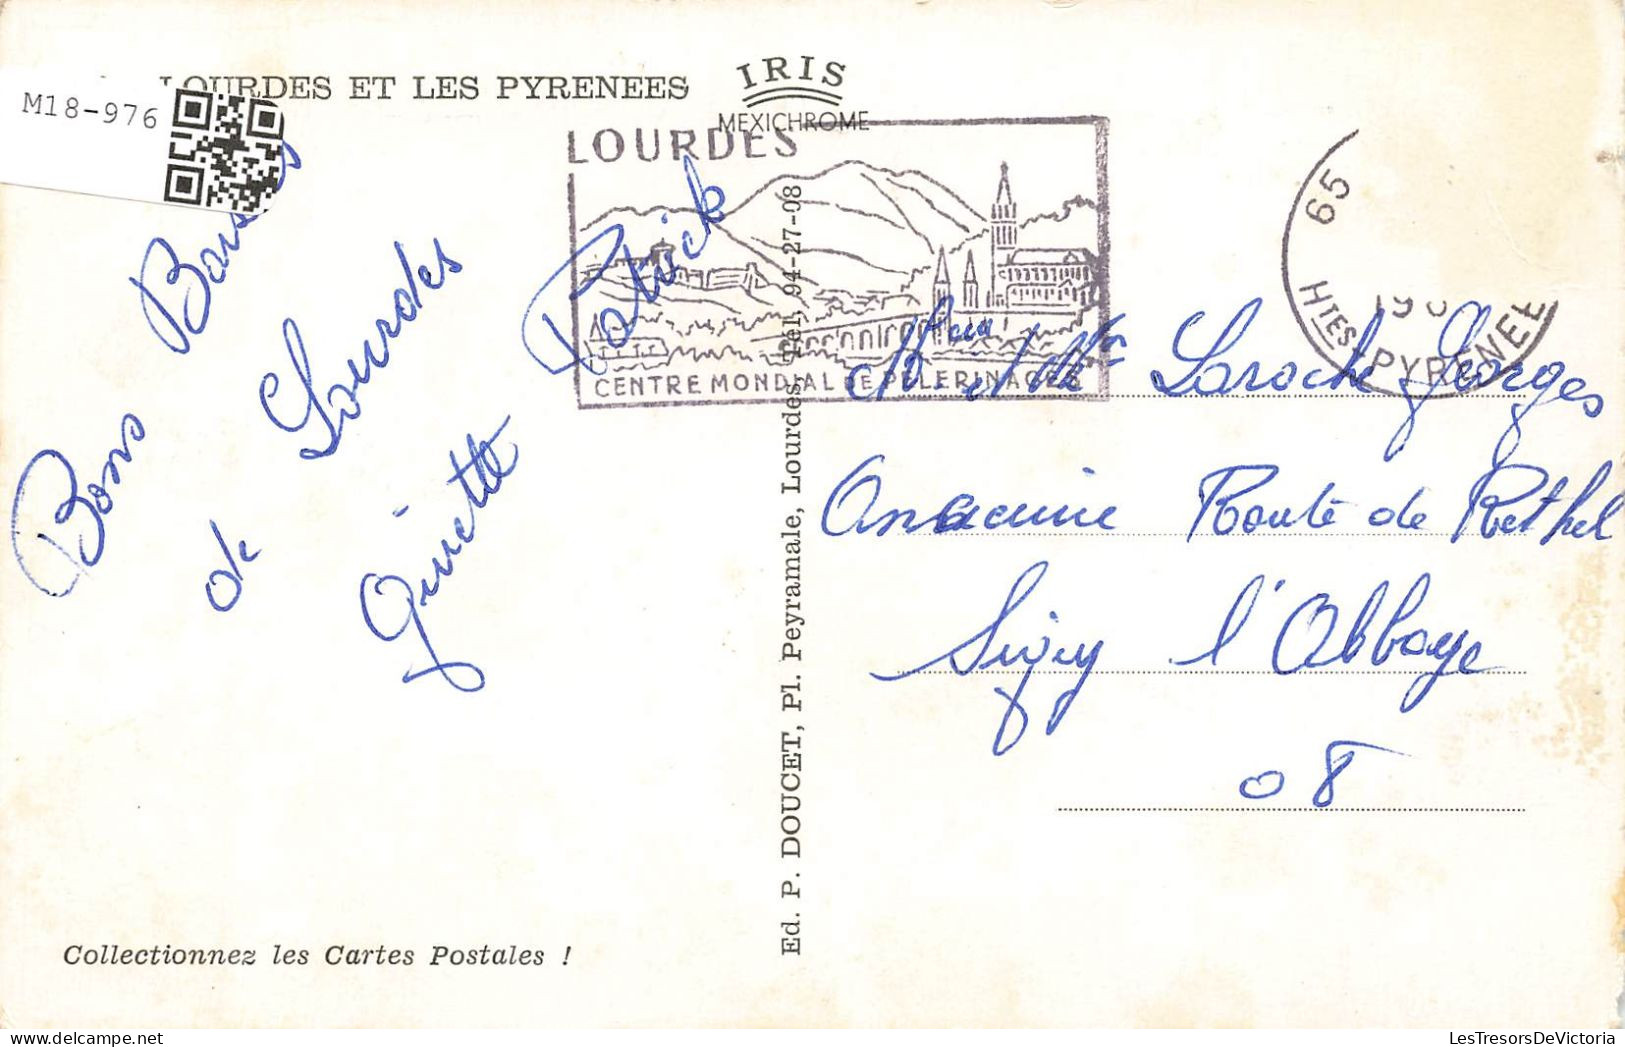 M18-976
LOURDES ET LES PYRENEES
IRIS
MEXICHROME
LOURDES
CENTRE MONDIAL DE PELERINAGES
65
HTES-PYRENEE
Bons Baisers
de Lourdes
Ginette Patrick
Ed. P. DOUCET, Pl. Peyramale, Lourdes, Tél. 94-27-08
Laroche Georges
Route de Rethel
Signy l'Abbaye
08
Collectionnez les Cartes Postales !
LesTresorsDeVictoria